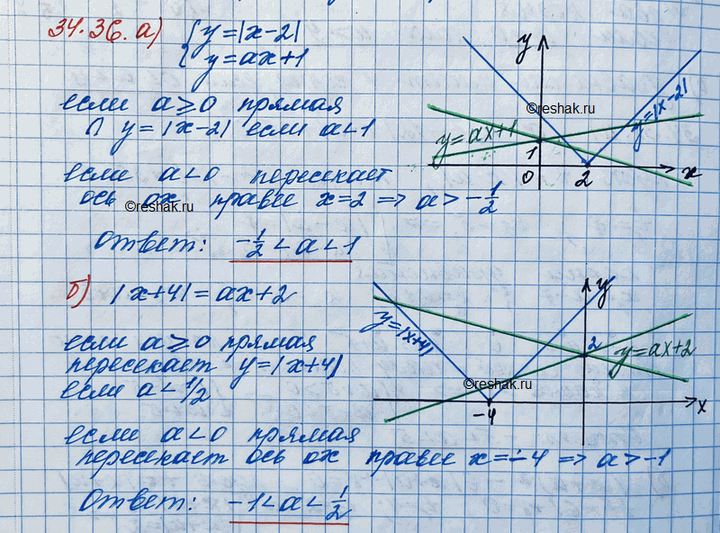 34.36. а) { y = |x-2|
y = ax+1
если a ⩾ 0 прямая
∩ y = |x-2| если a < 1
если a < 0 пересекает
ось ox правее x=2 => a > -1/2
Ответ: -1/2 < a < 1
y
©reshak.ru
y=|x-2|
y=ax+1
1
0
2
x
©reshak.ru
б) |x+4| = ax+2
если a ⩾ 0 прямая
пересекает y=|x+4|
если a < 1/2
если a < 0 прямая
пересекает ось ox правее x=-4 => a > -1
Ответ: -1 < a < 1/2
y
y=|x+4|
2
y=ax+2
©reshak.ru
-4
x